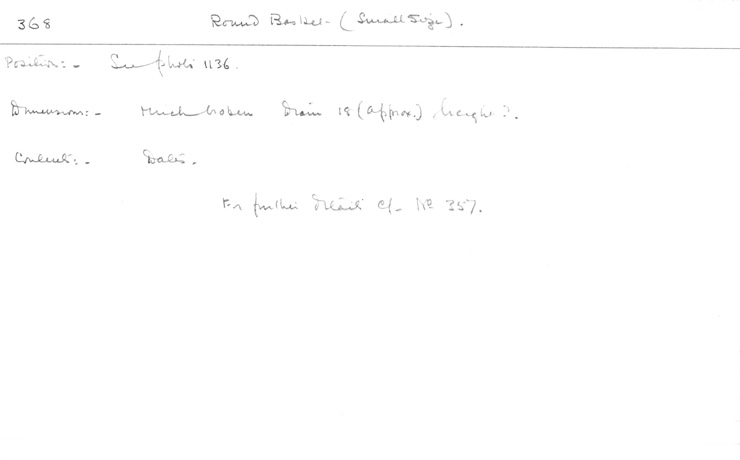 368 Round Basket - (Small Size).
Position:- See photo 1136.
Dimensions:- Much broken Diam 18 (approx.) height ?.
Contents:- Dates.
For further details cf. No 357.